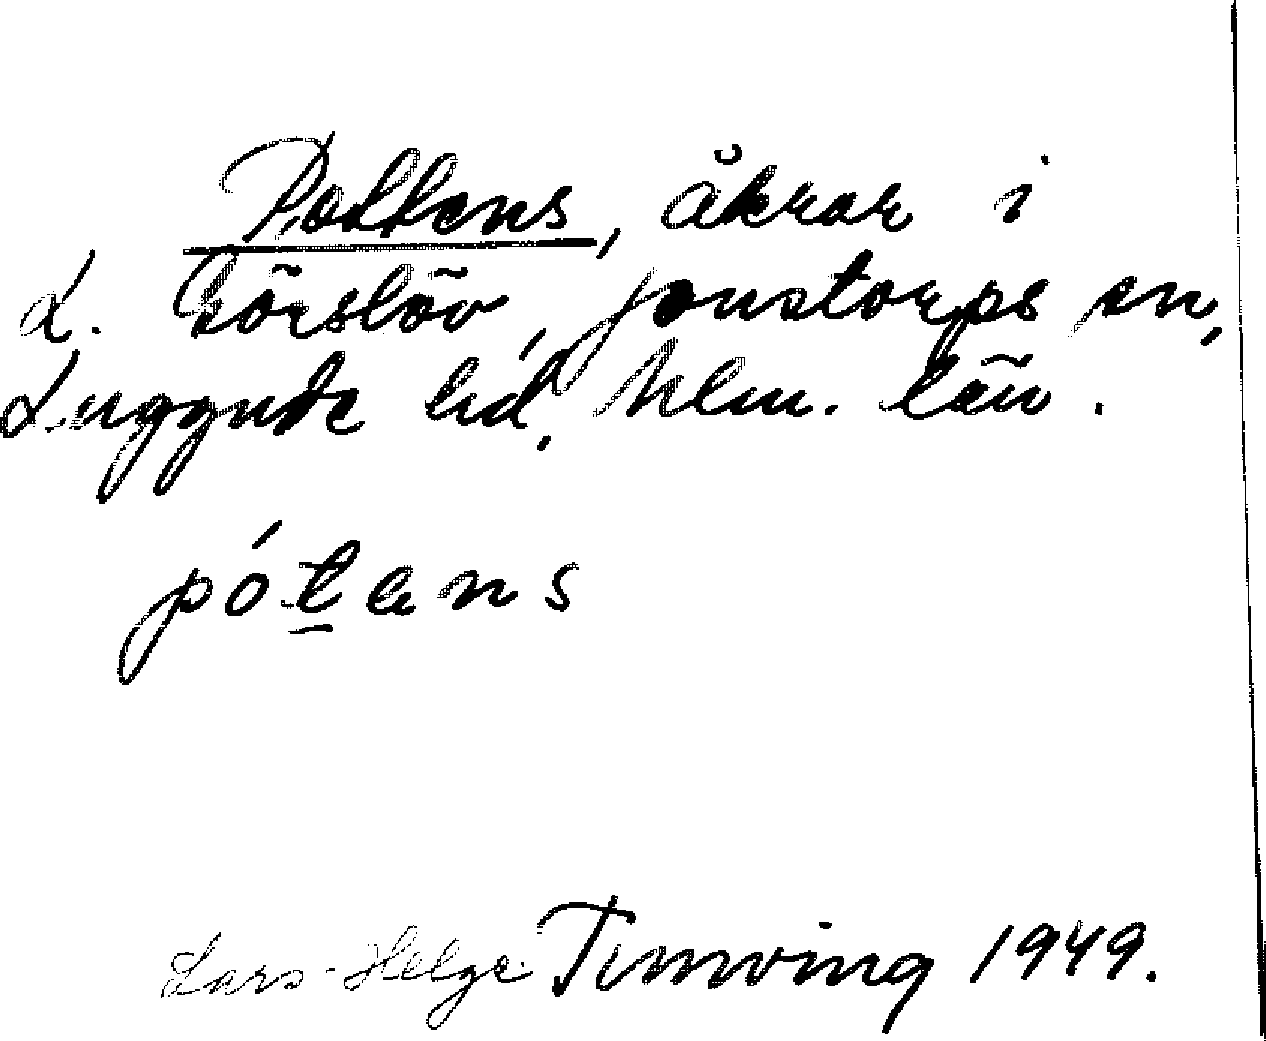 Pottens, åkrar i
L. Görslöv, Jonstorps sn,
Luggude hd, Mlm. län.
pótens
Lars-Helge Tunwing 1949.